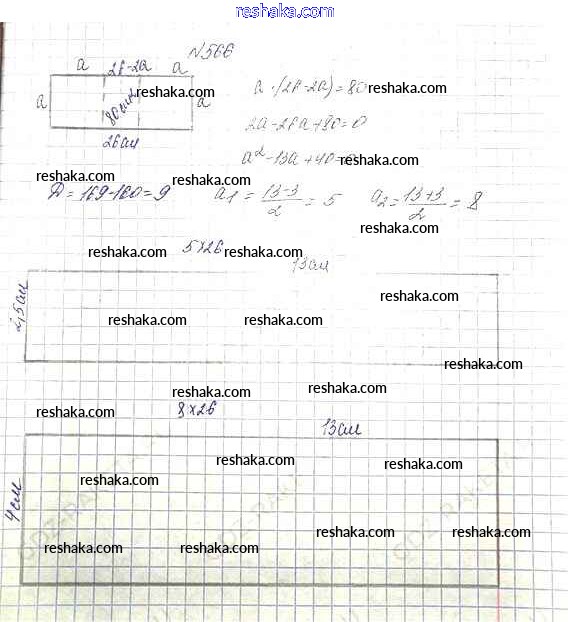 reshaka.com
№566
a 2f-2a a
reshaka.com
a 80см² a
a·(2f-2a)=80 reshaka.com
26см
2a-2fa+80=0
reshaka.com
a²-13a+40=
reshaka.com reshaka.com
D=169-160=9 a₁=(13-3)/2=5 a₂=(13+3)/2=8
reshaka.com
5×26
reshaka.com reshaka.com
13см
2,5см
reshaka.com
reshaka.com reshaka.com
reshaka.com
reshaka.com reshaka.com
8×26
reshaka.com
13см
reshaka.com reshaka.com
4см
reshaka.com
reshaka.com reshaka.com
reshaka.com reshaka.com